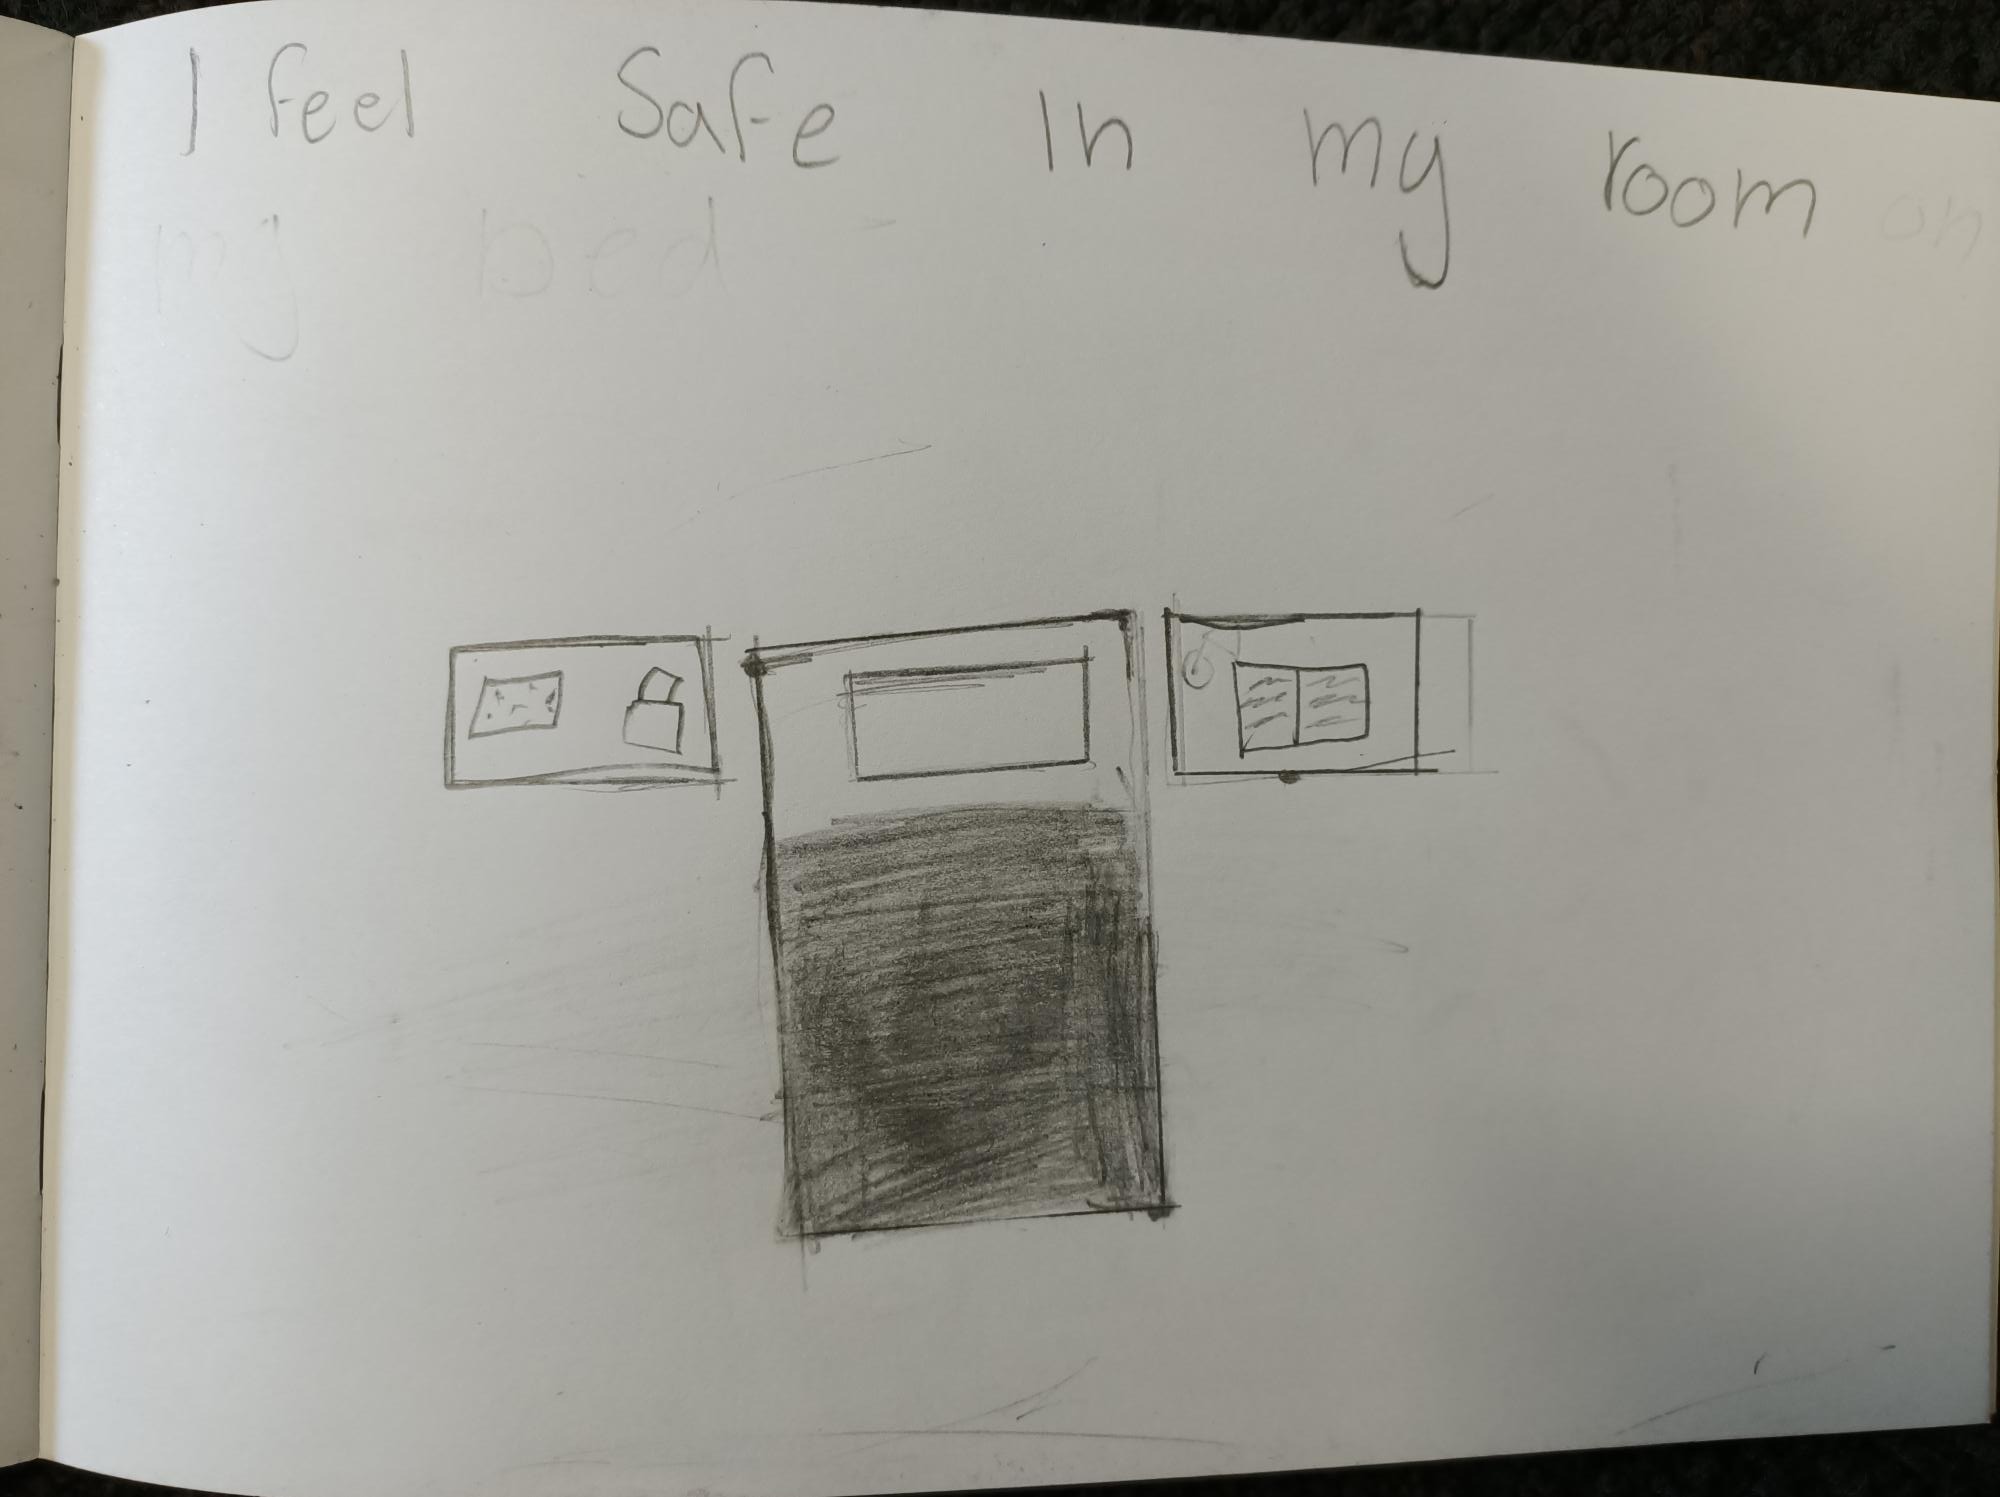 I feel Safe In my room on
my bed